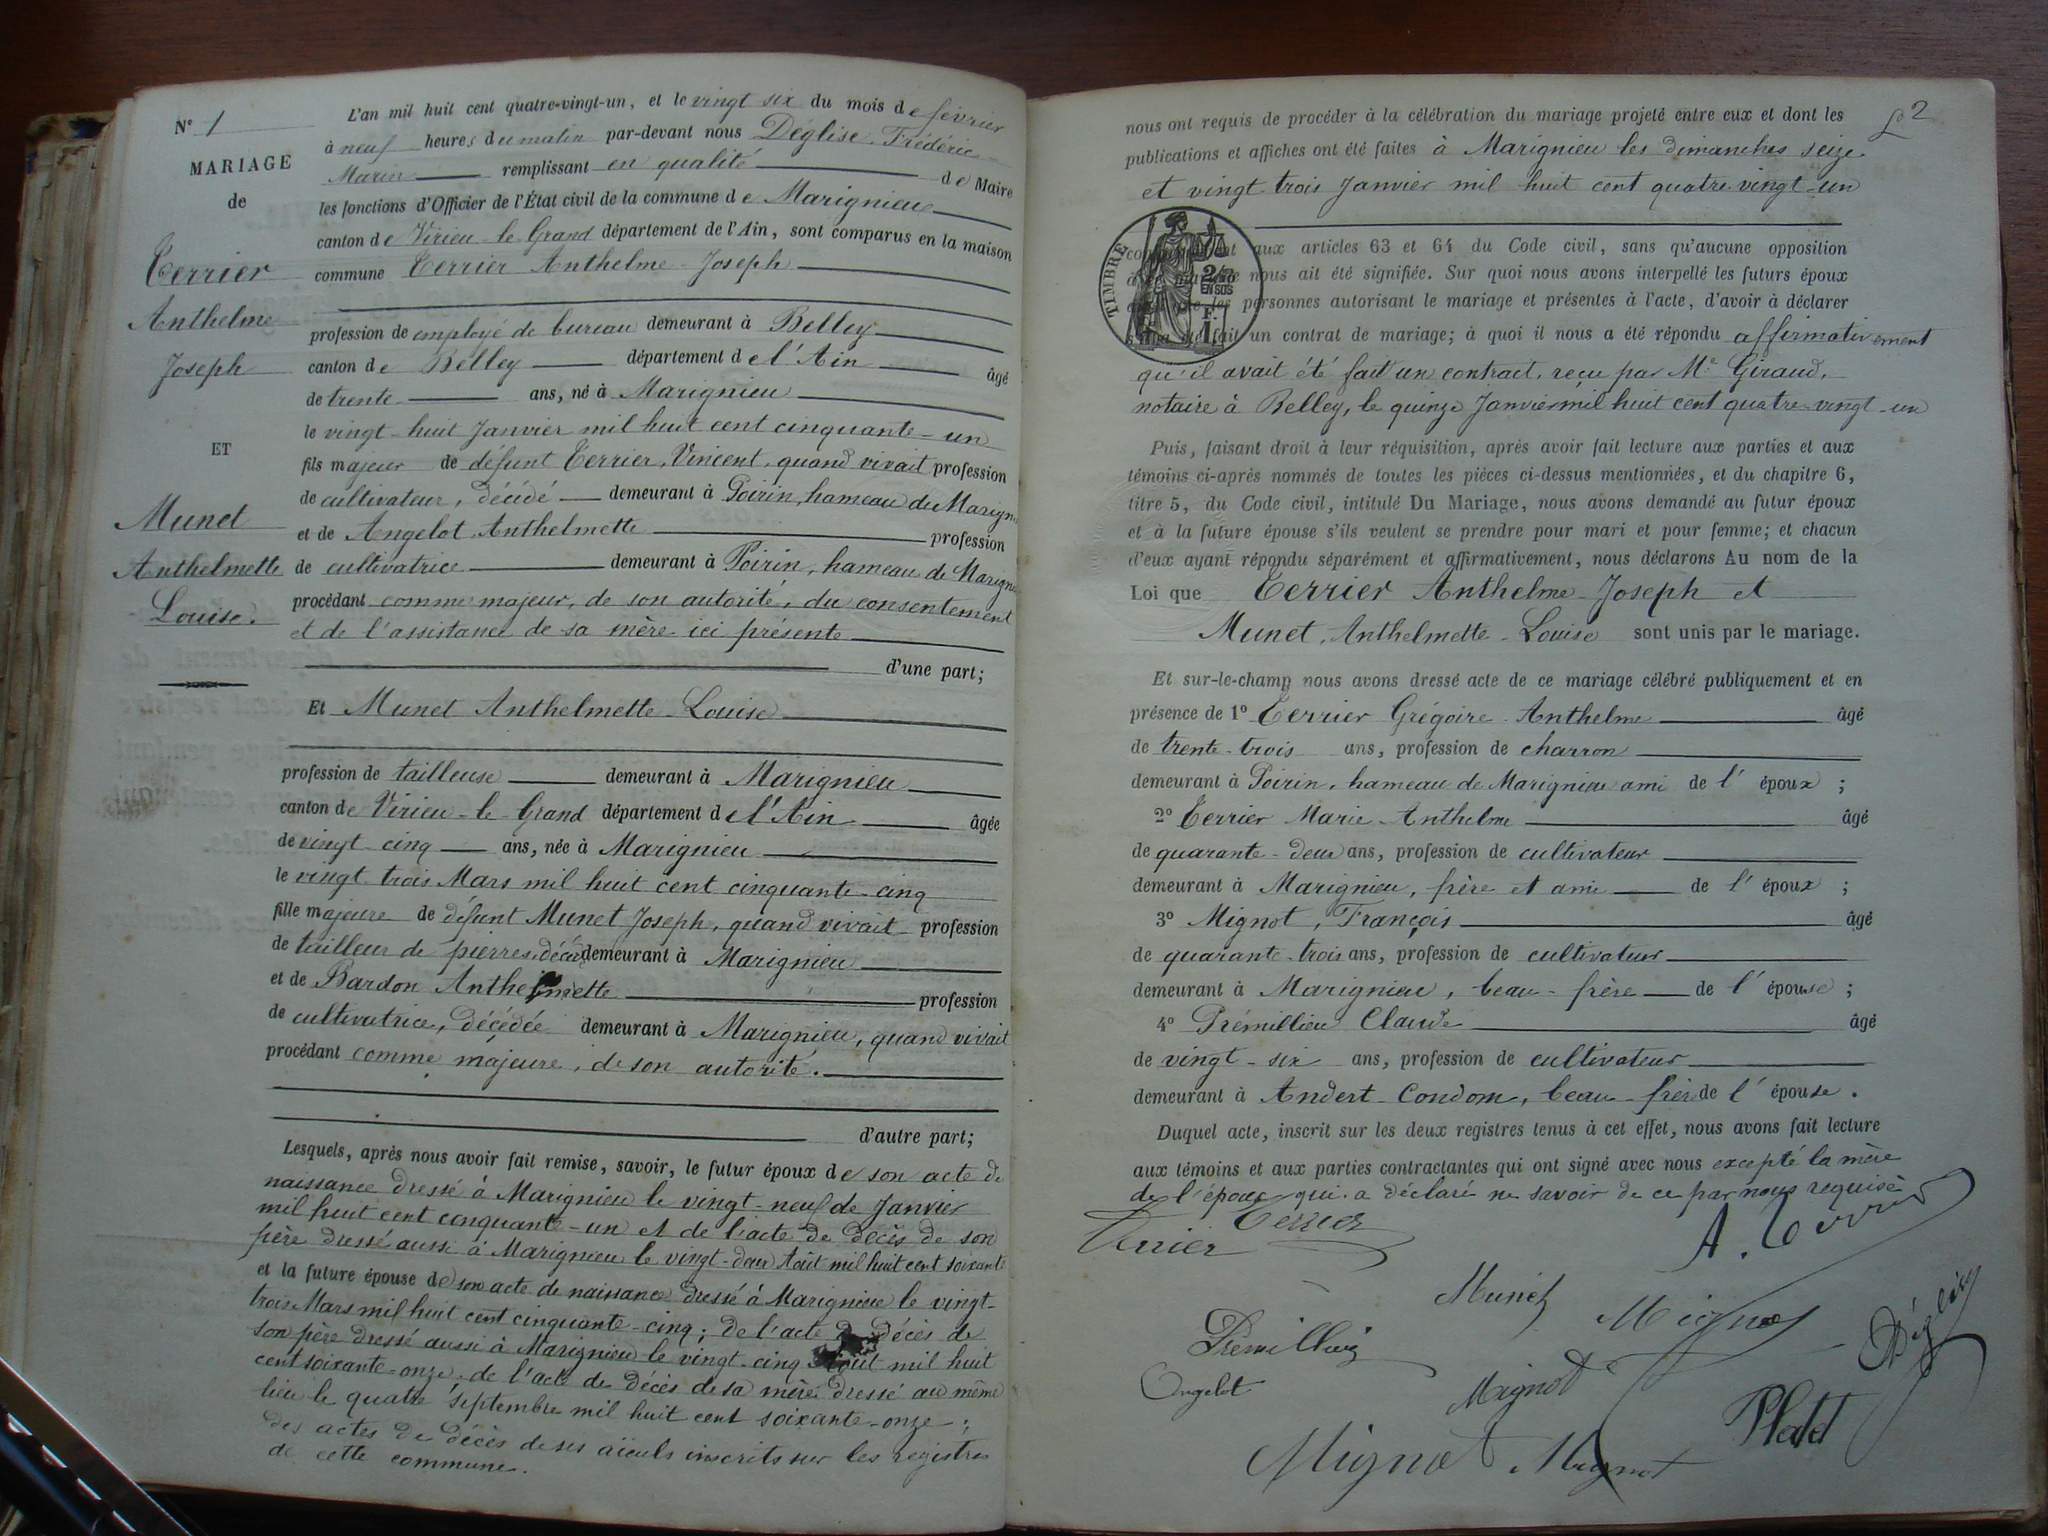 N° 1
MARIAGE
de
Terrier
Anthelme
Joseph
ET
Munet
Anthelmette
Louise.
L'an mil huit cent quatre-vingt-un, et le vingt six du mois de février
à neuf heures du matin par-devant nous Déglise, Frédéric
Marin remplissant en qualité de Maire
les fonctions d'Officier de l'État civil de la commune de Marignieu
canton de Virieu-le-Grand département de l'Ain, sont comparus en la maison
commune Terrier Anthelme-Joseph
profession de employé de bureau demeurant à Belley
canton de Belley département de l'Ain âgé
de trente ans, né à Marignieu
le vingt-huit Janvier mil huit cent cinquante-un
fils majeur de défunt Terrier, Vincent, quand vivait profession
de cultivateur, décédé demeurant à Poirin, hameau de Marign
et de Angelot Anthelmette profession
de cultivatrice demeurant à Poirin, hameau de Marign
procédant comme majeur, de son autorité, du consentement
et de l'assistance de sa mère ici présente
d'une part;
Et Munet Anthelmette-Louise
profession de tailleuse demeurant à Marignieu
canton de Virieu-le-Grand département de l'Ain âgée
de vingt-cinq ans, née à Marignieu
le vingt-trois Mars mil huit cent cinquante-cinq
fille majeure de défunt Munet Joseph, quand vivait profession
de tailleur de pierres, décédé demeurant à Marignieu
et de Bardon Anthelmette profession
de cultivatrice, décédée demeurant à Marignieu, quand vivait
procédant comme majeure, de son autorité.
d'autre part;
Lesquels, après nous avoir fait remise, savoir, le futur époux de son acte de
naissance dressé à Marignieu le vingt-neuf de Janvier
mil huit cent cinquante-un et de l'acte de décès de son
père dressé aussi à Marignieu le vingt-deux Août mil huit cent soixante
et la future épouse de son acte de naissance dressé à Marignieu le vingt-
trois Mars mil huit cent cinquante-cinq; de l'acte de décès de
son père dressé aussi à Marignieu le vingt-cinq Août mil huit
cent soixante-onze, de l'acte de décès de sa mère dressé au même
lieu le quatre septembre mil huit cent soixante-onze;
des actes de décès de ses aïeuls inscrits sur les registres
de cette commune.
2
nous ont requis de procéder à la célébration du mariage projeté entre eux et dont les
publications et affiches ont été faites à Marignieu les dimanches seize
et vingt trois Janvier mil huit cent quatre-vingt-un
TIMBRE
EN SUS
aux articles 63 et 64 du Code civil, sans qu'aucune opposition
nous ait été signifiée. Sur quoi nous avons interpellé les futurs époux
personnes autorisant le mariage et présentes à l'acte, d'avoir à déclarer
fait un contrat de mariage; à quoi il nous a été répondu affirmativement
qu'il avait été fait un contrat, reçu par Me Giraud,
notaire à Belley, le quinze Janvier mil huit cent quatre-vingt-un
Puis, faisant droit à leur réquisition, après avoir fait lecture aux parties et aux
témoins ci-après nommés de toutes les pièces ci-dessus mentionnées, et du chapitre 6,
titre 5, du Code civil, intitulé Du Mariage, nous avons demandé au futur époux
et à la future épouse s'ils veulent se prendre pour mari et pour femme; et chacun
d'eux ayant répondu séparément et affirmativement, nous déclarons Au nom de la
Loi que Terrier Anthelme-Joseph et
Munet, Anthelmette-Louise sont unis par le mariage.
Et sur-le-champ nous avons dressé acte de ce mariage célébré publiquement et en
présence de 1° Terrier Grégoire-Anthelme âgé
de trente-trois ans, profession de charron
demeurant à Poirin, hameau de Marignieu ami de l'époux ;
2° Terrier Marie-Anthelme âgé
de quarante-deux ans, profession de cultivateur
demeurant à Marignieu, frère et ami de l'époux ;
3° Mignot, François âgé
de quarante-trois ans, profession de cultivateur
demeurant à Marignieu, beau-frère de l'épouse ;
4° Prémillieu Claude âgé
de vingt-six ans, profession de cultivateur
demeurant à Andert-Condom, beau-frère de l'épouse.
Duquel acte, inscrit sur les deux registres tenus à cet effet, nous avons fait lecture
aux témoins et aux parties contractantes qui ont signé avec nous excepté la mère
de l'époux qui a déclaré ne savoir de ce par nous requise
Terrier Terrier A. Terrier
Munet Mignot Déglise
Prémillieu
Angelot Mignot
Platel
Mignot Mignot